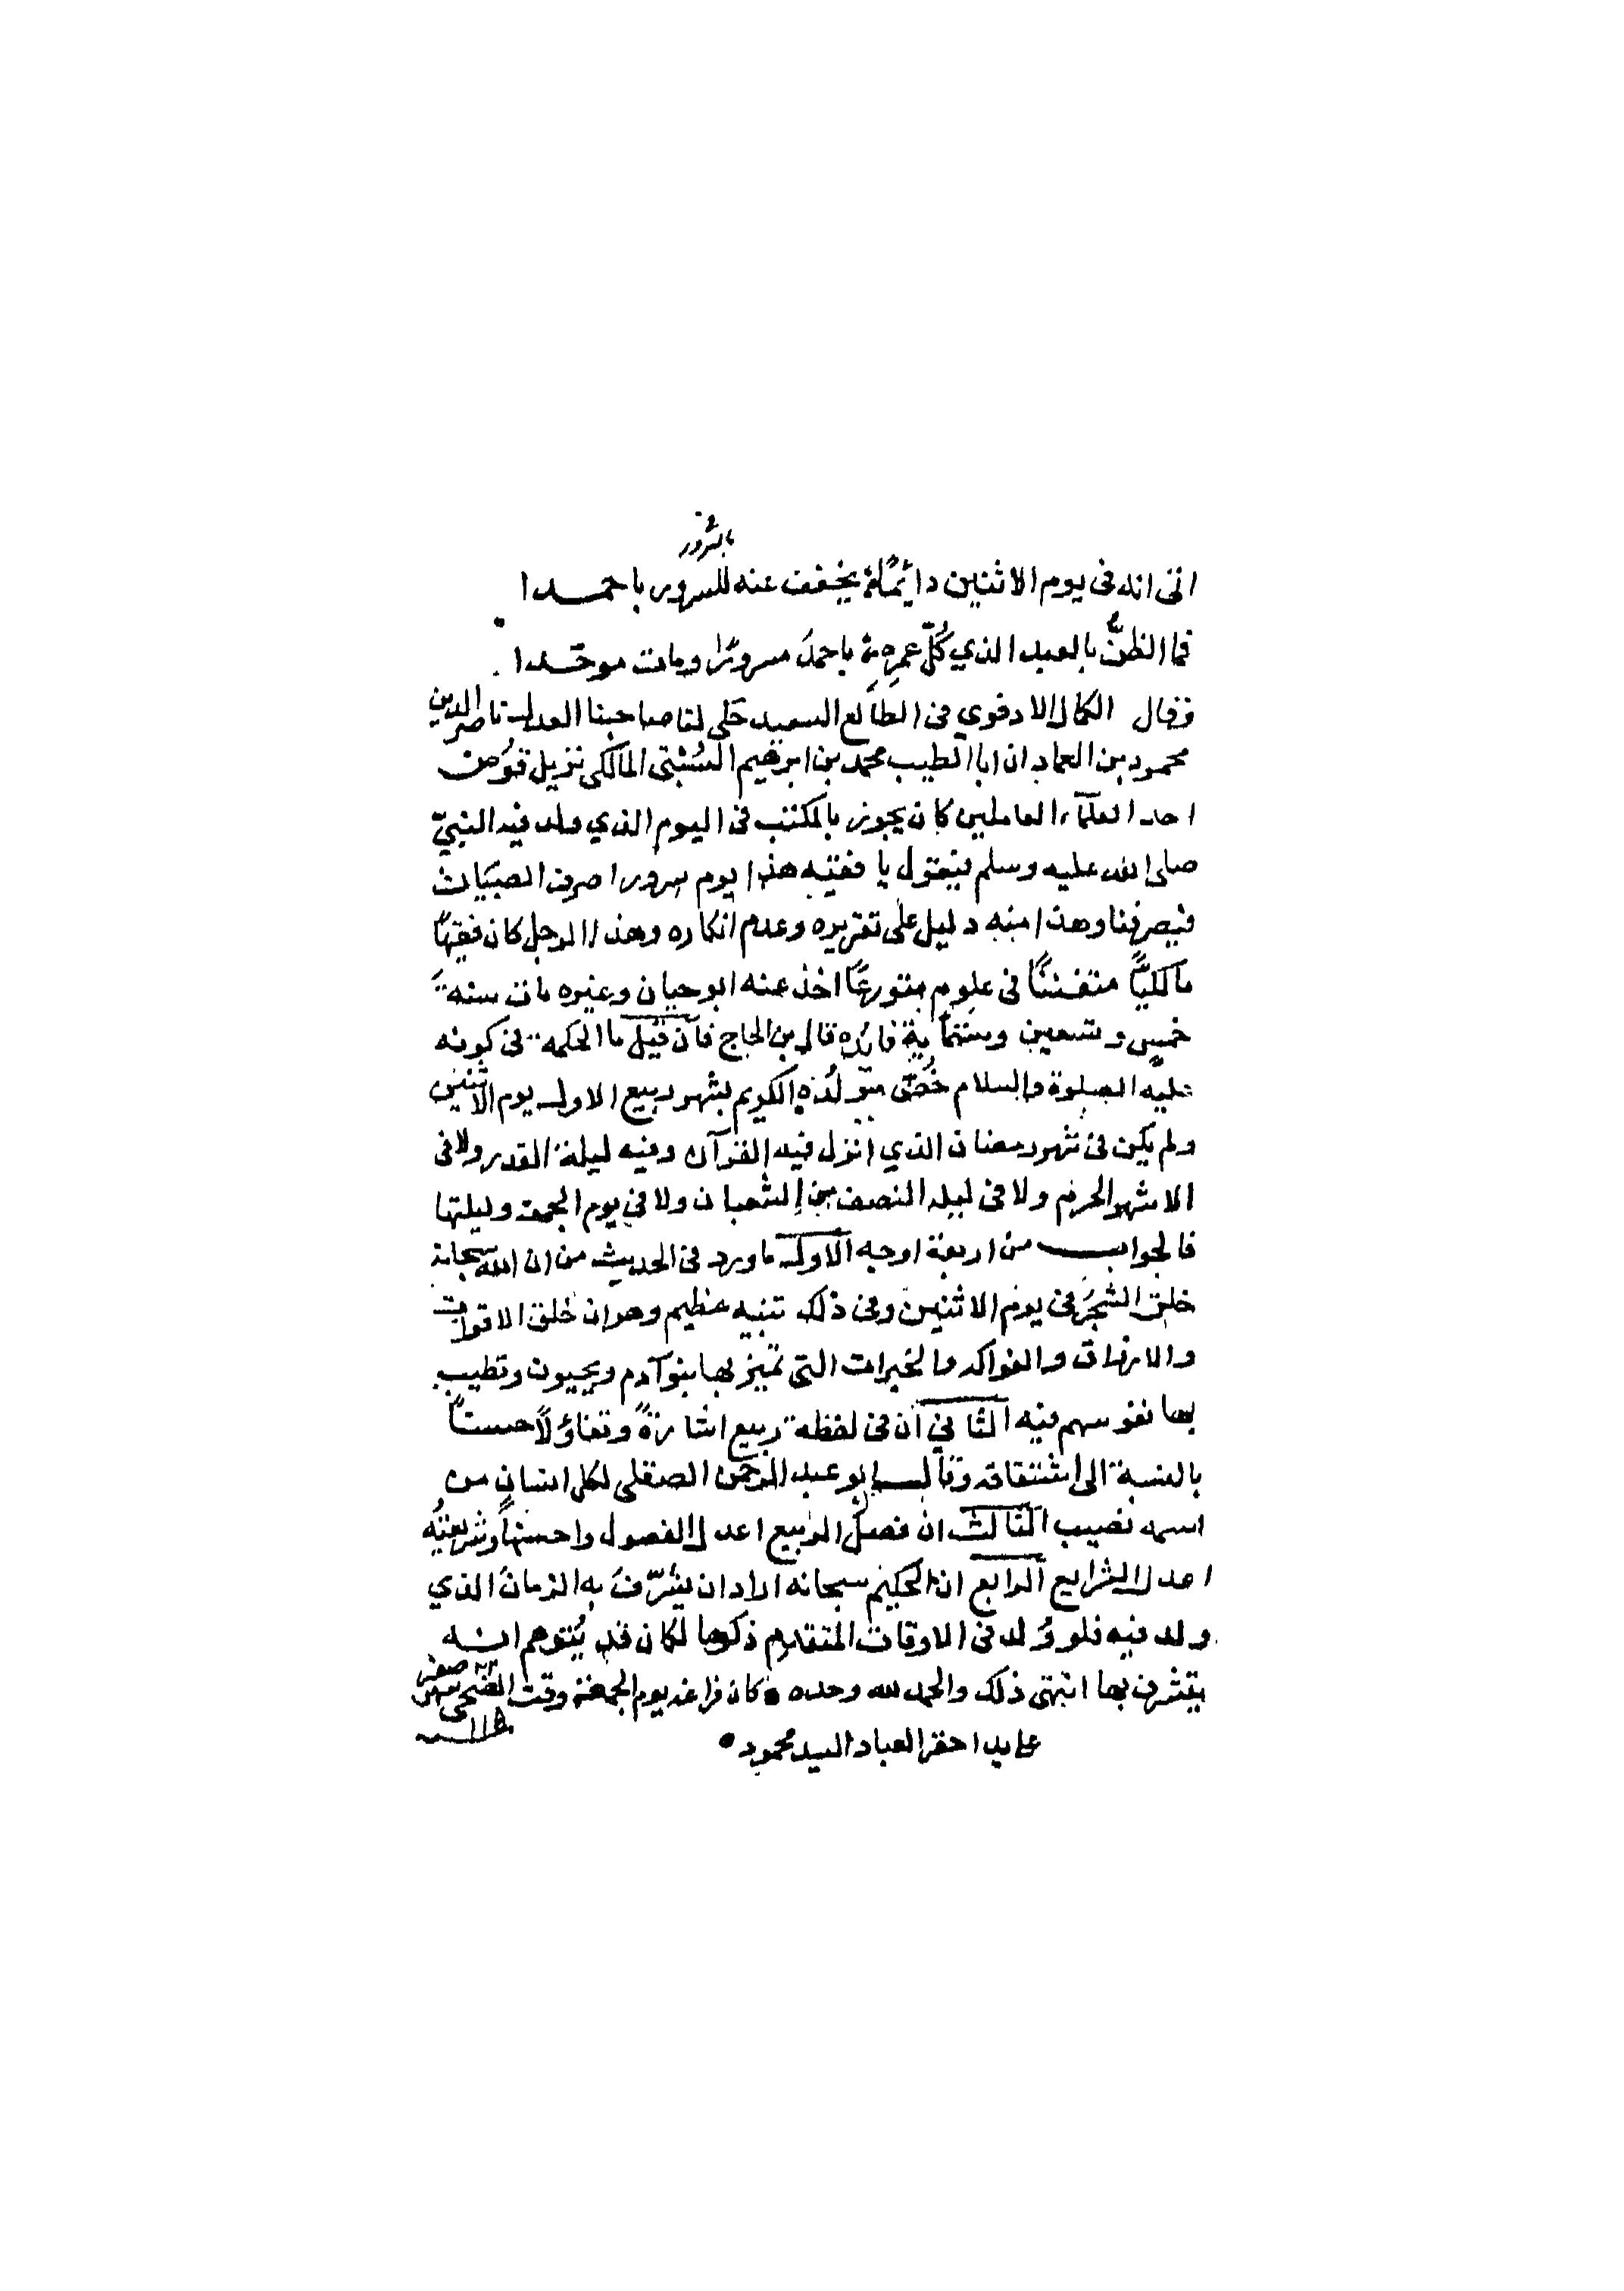 بالسرور
اتى انه فى يوم الاثنين دائمًا يخفف عنه للسرور باحمدا
فما الظنُّ بالعبد الذي كُلّ عمرِهِ باحمدَ مسرورًا ومات موحّدا
وقال الكمال الادفوي فى الطالع السعيد حَكى لنا صاحبنا العدل ناصر الدين
محمود بن العماد ان ابا الطيب محمد بن ابرهيم السُبْتى المالكى نزيل قوُص
احد العلمآء العاملين كان يجوز بالمكتب فى اليوم الذي ولد فيه النبيّ
صلى الله عليه وسلم فيقول يا فقيه هذا يوم سرور اصرف الصبيان
فيصرفنا وهذا منه دليل على تقريره وعدم انكاره وهذا الرجل كان فقيهًا
مالكيًّا متفننًا فى علوم متورعًا اخذ عنه ابو حيان وغيره مات سنة
خمس وتسعين وستمأية فائده قال بن الحاج فان قيل ما الحكمة فى كونه
عليه الصلوة والسلام خُصّ مولده الكريم بشهر ربيع الاول يوم الاثنين
ولم يكن فى شهر رمضان الذي انزل فيه القرآن وفيه ليلة القدر ولا فى
الاشهر الحرم ولا فى ليله النصف من الشعبان ولا في يوم الجمعة وليلتها
فالجواب من اربعة اوجه الاول ما ورد فى الحديث من ان الله سبحانه
خلق الشجرَ فى يوم الاثنين وفى ذلك تنبيه عظيم وهو ان خلق الاقوات
والارزاق والفواكه والخيرات التى تميز بها بنو آدم ويحيون وتطيب
بها نفوسهم فيه الثاني ان فى لفظة ربيع اشارةً وتفاؤلًا حسنًا
بالنسبة الى اشتقاقه وقال ابو عبد الرحمن الصقلى لكل انسان من
اسمه نصيب الثالث ان فصل الربيع اعدل الفصول واحسنها وشريعتُه
اعدل الشرايع الرابع ان الحكيم سبحانه اراد ان يشرّف به الزمان الذي
ولد فيه فلو وُلد فى الاوقات المتقدم ذكرها لكان قد يُتوهم انه
يتشرف بها انتهى ذلك والحمد لله وحده كان فراغه يوم الجمعة وقت الضحى صفر
على يد احقر العباد السيد محمود